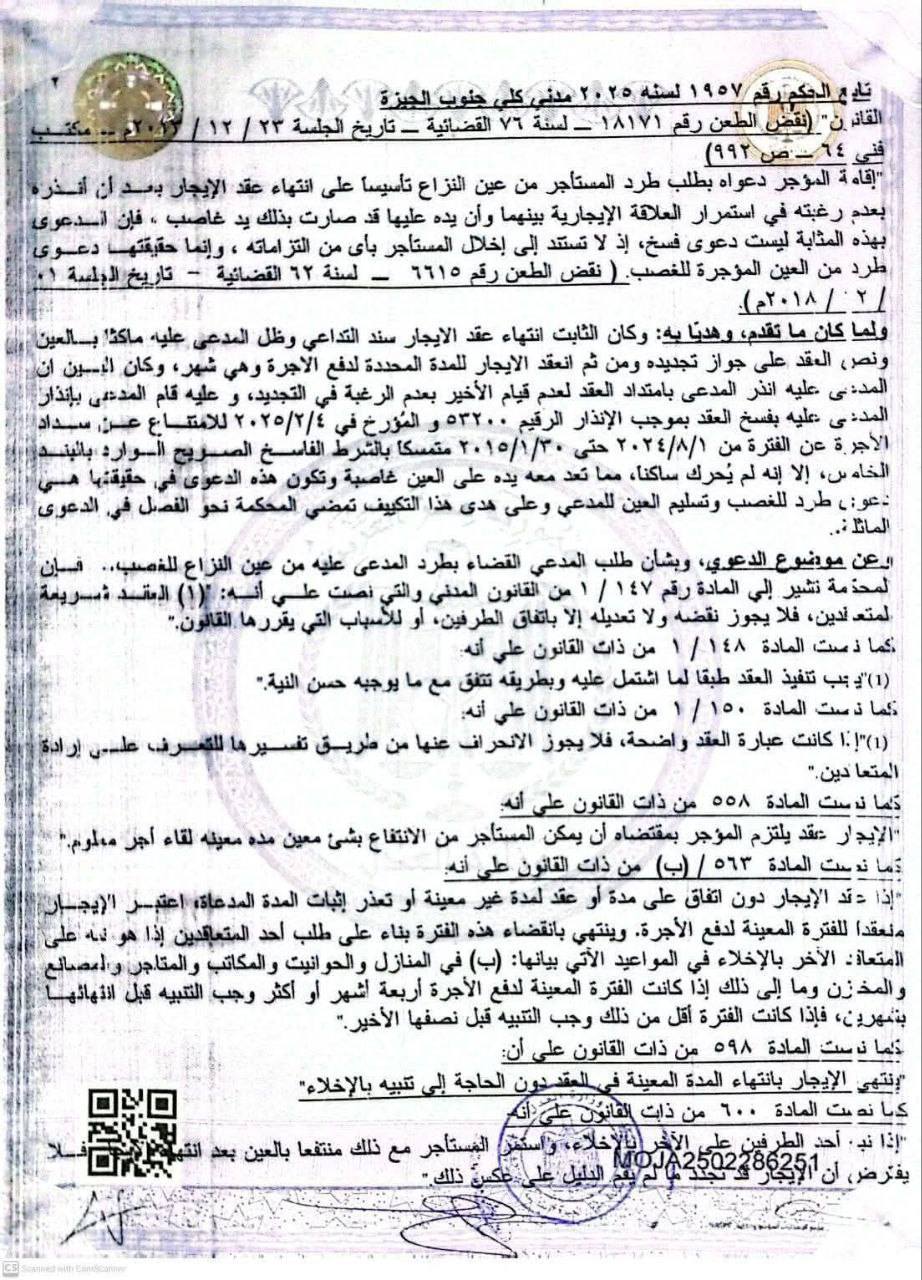 ٢
تابع الحكم رقم ١٩٥٧ لسنه ٢٠٢٥ مدني كلي جنوب الجيزة
القانون" (نقض الطعن رقم ١٨١٧١ – لسنة ٧٦ القضائية – تاريخ الجلسة ٢٣ / ١٢ / ٢٠١٣م – مكتب
فني ٦٤ – ص ٩٩٢)
"إقامة المؤجر دعواه بطلب طرد المستأجر من عين النزاع تأسيساً على انتهاء عقد الإيجار بعد أن أنذره
بعدم رغبته في استمرار العلاقة الإيجارية بينهما وأن يده عليها قد صارت بذلك يد غاصب ، فإن الدعوى
بهذه المثابة ليست دعوى فسخ، إذ لا تستند إلى إخلال المستأجر بأى من التزاماته ، وإنما حقيقتها دعوى
طرد من العين المؤجرة للغصب. ( نقض الطعن رقم ٦٦١٥ – لسنة ٦٢ القضائية – تاريخ الجلسة ٠١
/ ٢ / ٢٠١٨م).
ولما كان ما تقدم، وهديًا به: وكان الثابت انتهاء عقد الايجار سند التداعي وظل المدعى عليه ماكثا بالعين
ونص العقد على جواز تجديده ومن ثم انعقد الايجار للمدة المحددة لدفع الاجرة وهي شهر، وكان البين ان
المدعى عليه انذر المدعى بامتداد العقد لعدم قيام الأخير بعدم الرغبة في التجديد، و عليه قام المدعى بإنذار
المدعى عليه بفسخ العقد بموجب الإنذار الرقيم ٥٣٢٠٠ و المُؤرخ في ٢٠٢٥/٢/٤ للامتناع عن سداد
الأجرة عن الفترة من ٢٠٢٤/٨/١ حتى ٢٠١٥/١/٣٠ متمسكا بالشرط الفاسخ الصريح الوارد بالبند
الخامس، إلا إنه لم يُحرك ساكنا، مما تعد معه يده على العين غاصبة وتكون هذه الدعوى في حقيقتها هي
دعوى طرد للغصب وتسليم العين للمدعي وعلى هدى هذا التكييف تمضي المحكمة نحو الفصل في الدعوى
الماثلة.
وعن موضوع الدعوي، وبشأن طلب المدعي القضاء بطرد المدعى عليه من عين النزاع للغصب،. فإن
المحكمة تشير إلي المادة رقم ١٤٧ / ١ من القانون المدني والتي نصت علي أنه: "(١) العقد شريعة
المتعاقدين، فلا يجوز نقضه ولا تعديله إلا باتفاق الطرفين، أو للأسباب التي يقررها القانون."
كما نصت المادة ١٤٨ / ١ من ذات القانون علي أنه:
(١)"يجب تنفيذ العقد طبقا لما اشتمل عليه وبطريقه تتفق مع ما يوجبه حسن النية."
كما نصت المادة ١٥٠ / ١ من ذات القانون علي أنه:
(١)"إذا كانت عبارة العقد واضحة، فلا يجوز الانحراف عنها من طريق تفسيرها للتعرف علي إرادة
المتعاقدين."
كما نصت المادة ٥٥٨ من ذات القانون علي أنه:
"الإيجار عقد يلتزم المؤجر بمقتضاه أن يمكن المستأجر من الانتفاع بشئ معين مده معينه لقاء أجر معلوم."
كما نصت المادة ٥٦٣ / (ب) من ذات القانون علي أنه:
"إذا عقد الإيجار دون اتفاق على مدة أو عقد لمدة غير معينة أو تعذر إثبات المدة المدعاة، اعتبر الإيجار
منعقدا للفترة المعينة لدفع الأجرة. وينتهي بانقضاء هذه الفترة بناء على طلب أحد المتعاقدين إذا هو نبه على
المتعاقد الآخر بالإخلاء في المواعيد الآتي بيانها: (ب) في المنازل والحوانيت والمكاتب والمتاجر والمصانع
والمخازن وما إلى ذلك إذا كانت الفترة المعينة لدفع الأجرة أربعة أشهر أو أكثر وجب التنبيه قبل انتهائها
بشهرين، فإذا كانت الفترة أقل من ذلك وجب التنبيه قبل نصفها الأخير."
كما نصت المادة ٥٩٨ من ذات القانون علي أن:
"ينتهي الإيجار بانتهاء المدة المعينة في العقد دون الحاجة إلي تنبيه بالإخلاء"
كما نصت المادة ٦٠٠ من ذات القانون علي أنه:
"إذا نبه أحد الطرفين على الآخر بالإخلاء، واستمر المستأجر مع ذلك منتفعا بالعين بعد انتهاء فلا
MOJA2502286251
يفترض أن الإيجار قد تجدد ما لم يقم الدليل على عكس ذلك."
CS Scanned with CamScanner